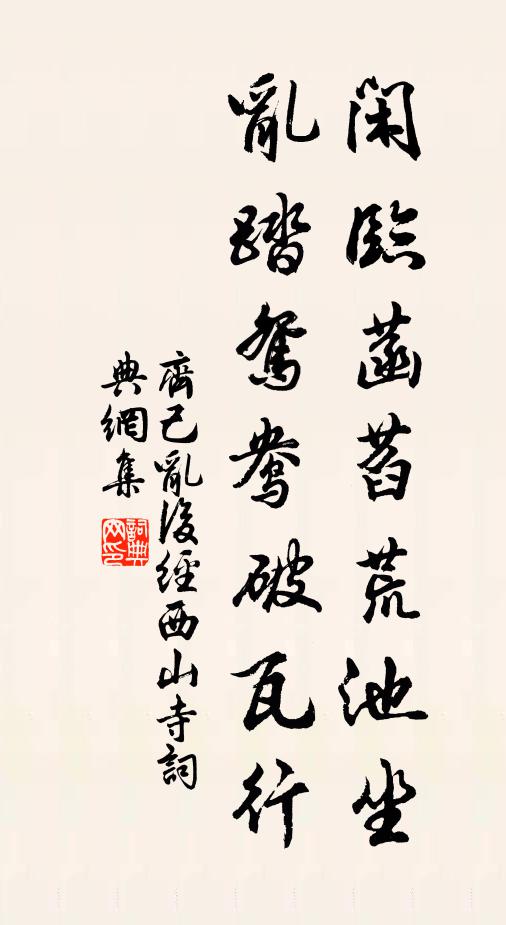 閑臨菡萏荒池坐
亂踏鴛鴦破瓦行
齊己亂後經西山寺詞
典網集
詞典網印